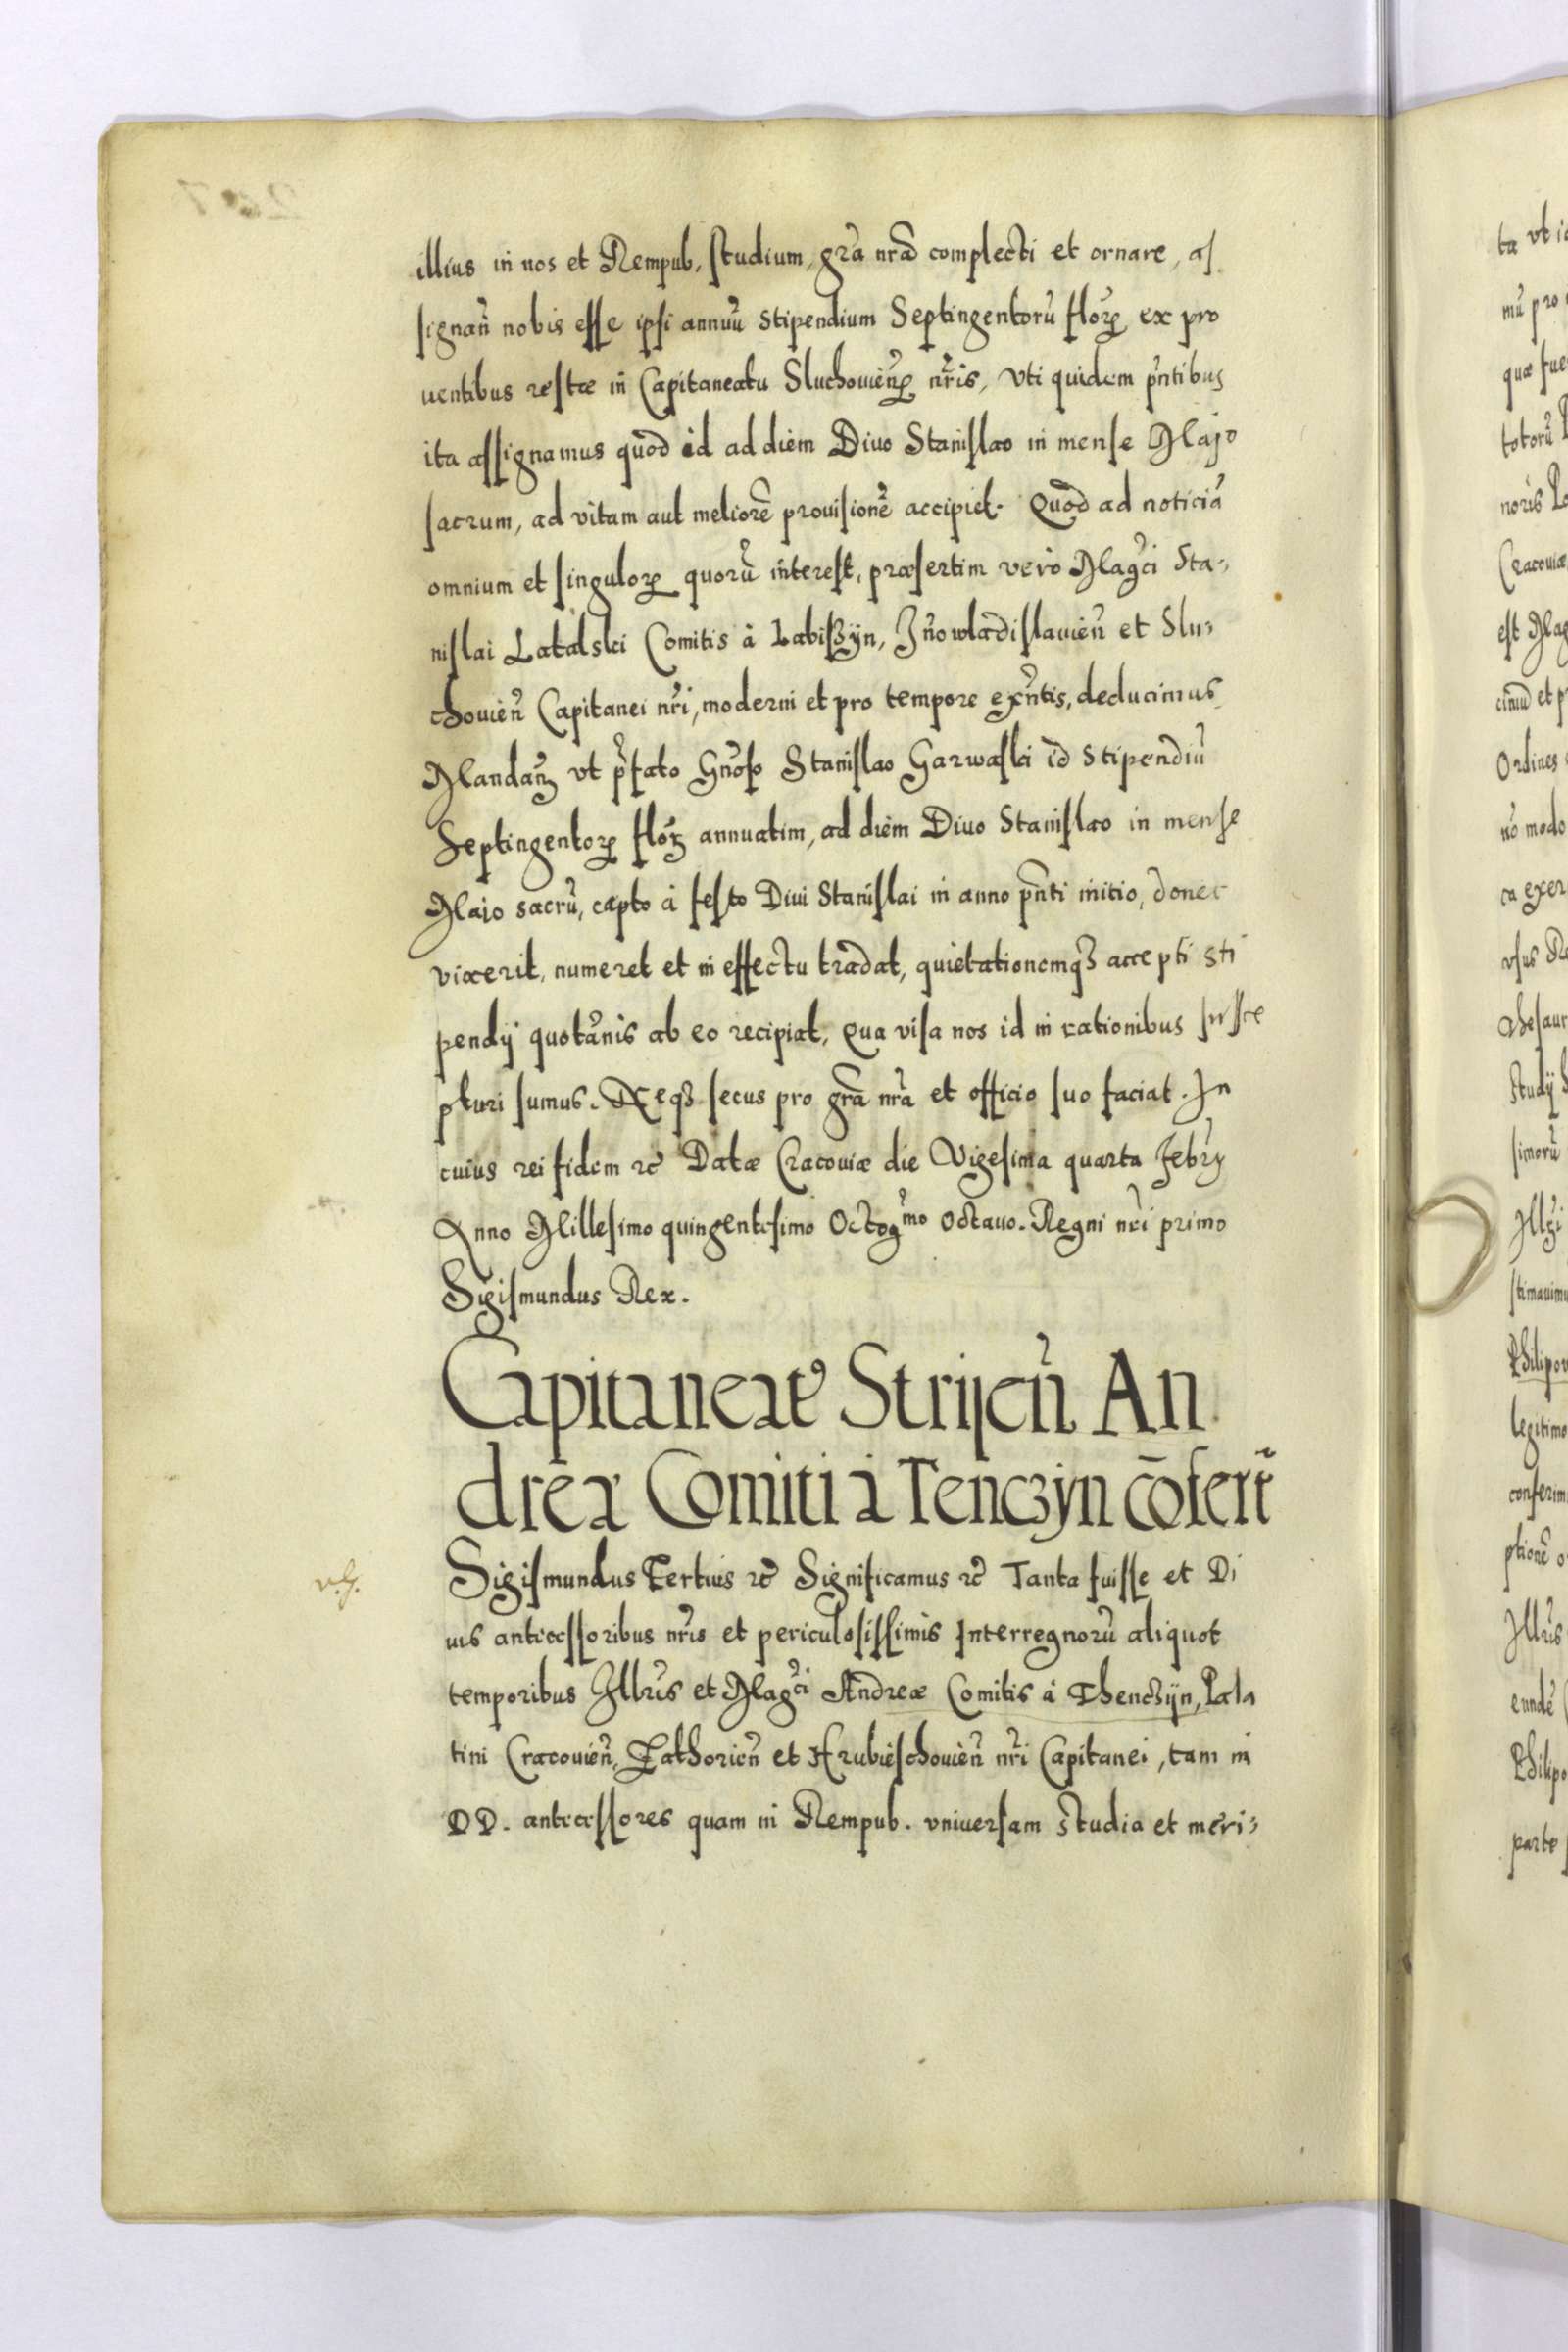 illius in nos et Rempub. studium, gr̃a nr̃a complecti et ornare, as
signañ nobis esse ipsi annuũ Stipendium Septingentorũ floꝝ ex pro
uentibus restæ in Capitaneatu Sluchouieñ nr̃is, Vti quidem pñtibus
ita assignamus quod id ad diem Diuo Stanislao in mense Majo
sacrum, ad vitam aut meliorẽ prouisionẽ accipiet. Quod ad noticiã
omnium et singuloꝝ quorũ interest, præsertim vero Mag̃ci Sta-
nislai Latalski Comitis à Labiszÿn, Inowladislauieñ et Slu-
chouieñ Capitanei nr̃i, moderni et pro tempore exñtis, deducimus
Mandamꝰ vt p̃fato Gñoso Stanislao Garwaski id Stipendiũ
Septingentoꝝ floꝝ annuatim, ad diem Diuo Stanislao in mense
Majo sacrũ, capto à festo Diui Stanislai in anno pñti initio, donec
vixerit, numeret et in effectu tradat, quietationemqꝫ accepti sti
pendÿ quotannis ab eo recipiat, Qua visa nos id in rationibus susce
pturi sumus. Neqꝫ secus pro gr̃a nr̃a et officio suo faciat. In
cuius rei fidem ꝛc̃ Datæ Cracouiæ die Vigesima quarta Febrỹ
Anno Millesimo quingentesimo Octogmo Octauo. Regni nr̃i primo
Sigismundus Rex.
Capitaneatꝰ Strijeñ An
dreæ Comiti à Tenczÿn cõfert̃
Sigismundus Tertius ꝛc̃ Significamus ꝛc̃ Tanta fuisse et Di
uis antecessoribus nr̃is et periculosissimis Interregnorũ aliquot
temporibus Illr̃is et Mag̃ci Andreæ Comitis à Thenczÿn, Pala
tini Cracouieñ, et Hrubieschouieñ nr̃i Capitanei, tam in
DD. antecessores quam in Rempub. vniuersam studia et meri-